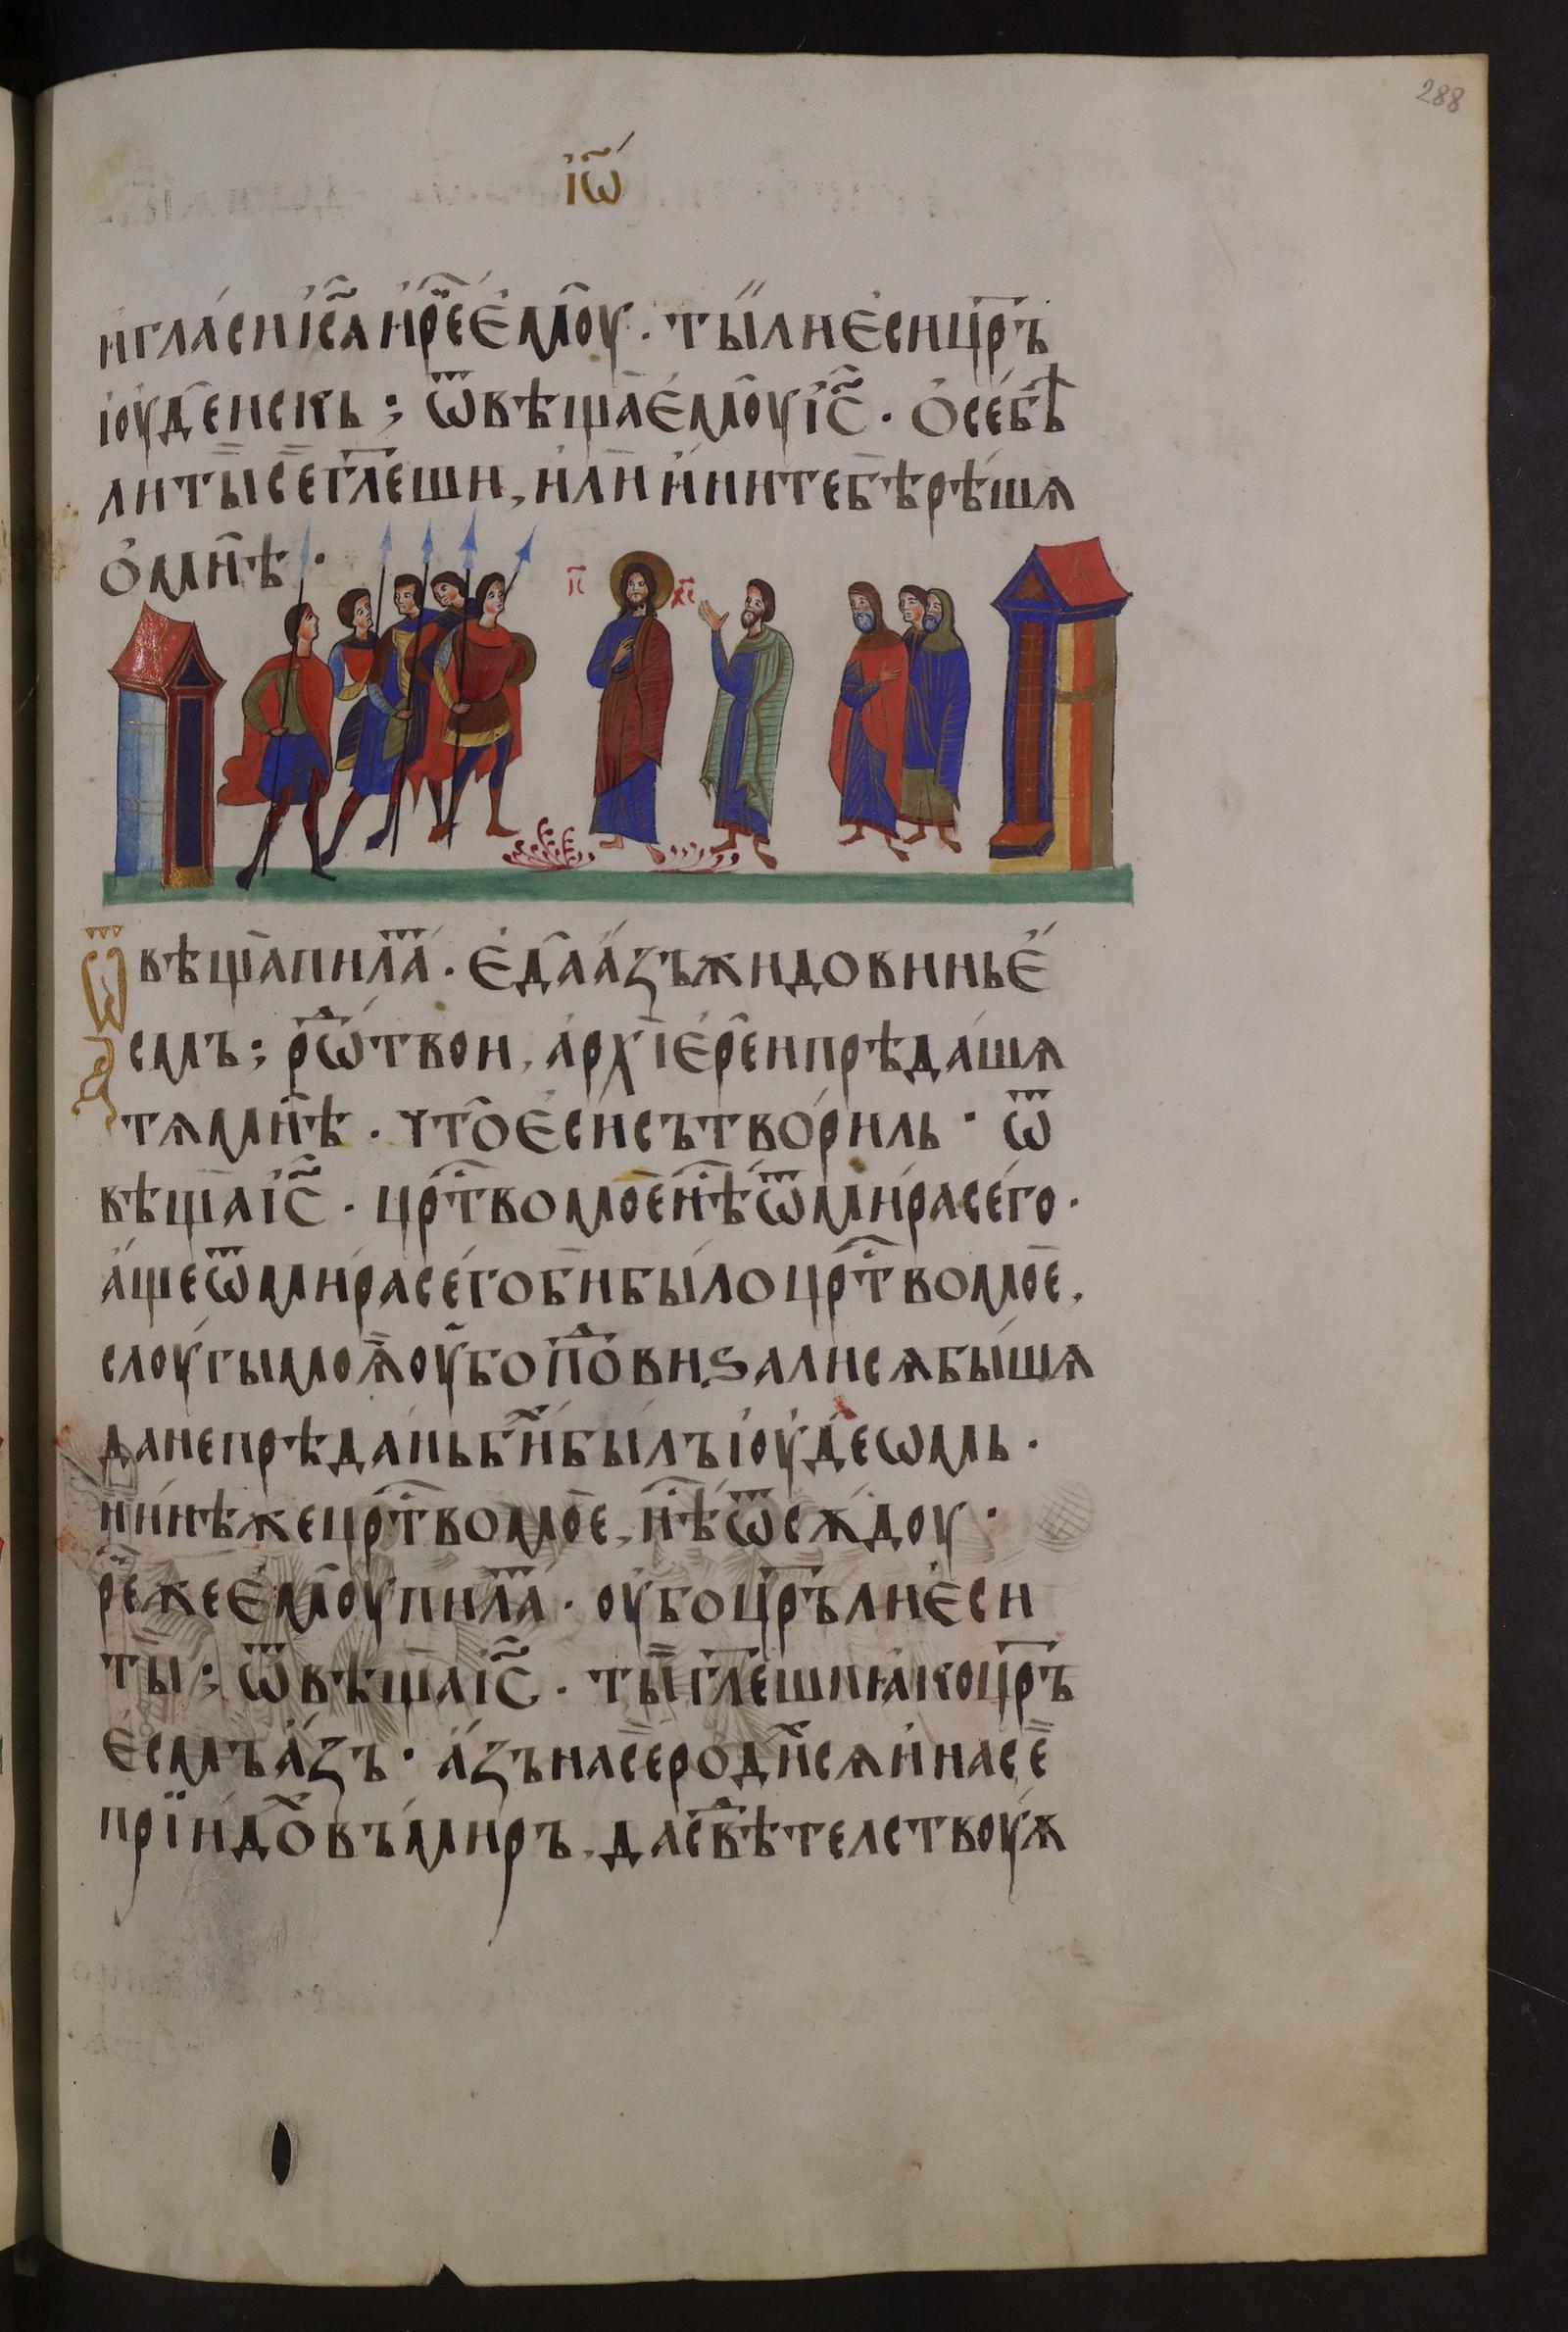 288
і҆ѡ҃
и҆гла́сиі҆с҃аи҆рⷱ҇ее҆моу҆. ты́лие҆сицр҃ъ
і҆оуде́искъ; ѿвѣща̀е҆моуі҆с҃. ѡ҆себѣ̀
литы̀сег҃лешиⷮ, и҆лѝи҆нитебѣрѣ́шѧ
ѻ҆мнѣ̀.
і҃с х҃с
ѿвѣща̀пила́ⷮ. е҆да̀а҆зъжидовинье҆
смъ; рѡ́ⷣтвои, а҆рхіе҆реипрѣда́шѧ
тѧмнѣ̀. что̀е҆сѝсътвори́ль. ѿ
вѣща̀і҆с҃. црⷭ҇твомоенⷭ҇ѣѿми́расего̀.
а҆́щеѿми́расе́гобибы́лоцрⷭ҇твомое,
слоугымоѫ҆оу҆бопоⷣвиѕалисѧбы́шѧ
данепрѣда́ньбѝхбылъі҆оуде́ѡмь.
ни́нѣжецрⷭ҇твомое, нⷭ҇ѣѿсѫдоу.
рⷱ҇ежее҆моупила́ⷮ. оу҆боцр҃ълие҆си
ты̀; ѿвѣща̀і҆с҃. ты̀гл҃ешиꙗ҆коцр҃ъ
е҆смъа҆́зъ. а҆́зънасеродиⷯсѧи҆насе
прїидоⷯвъми́ръ, дасвⷣѣтелствоуѫ